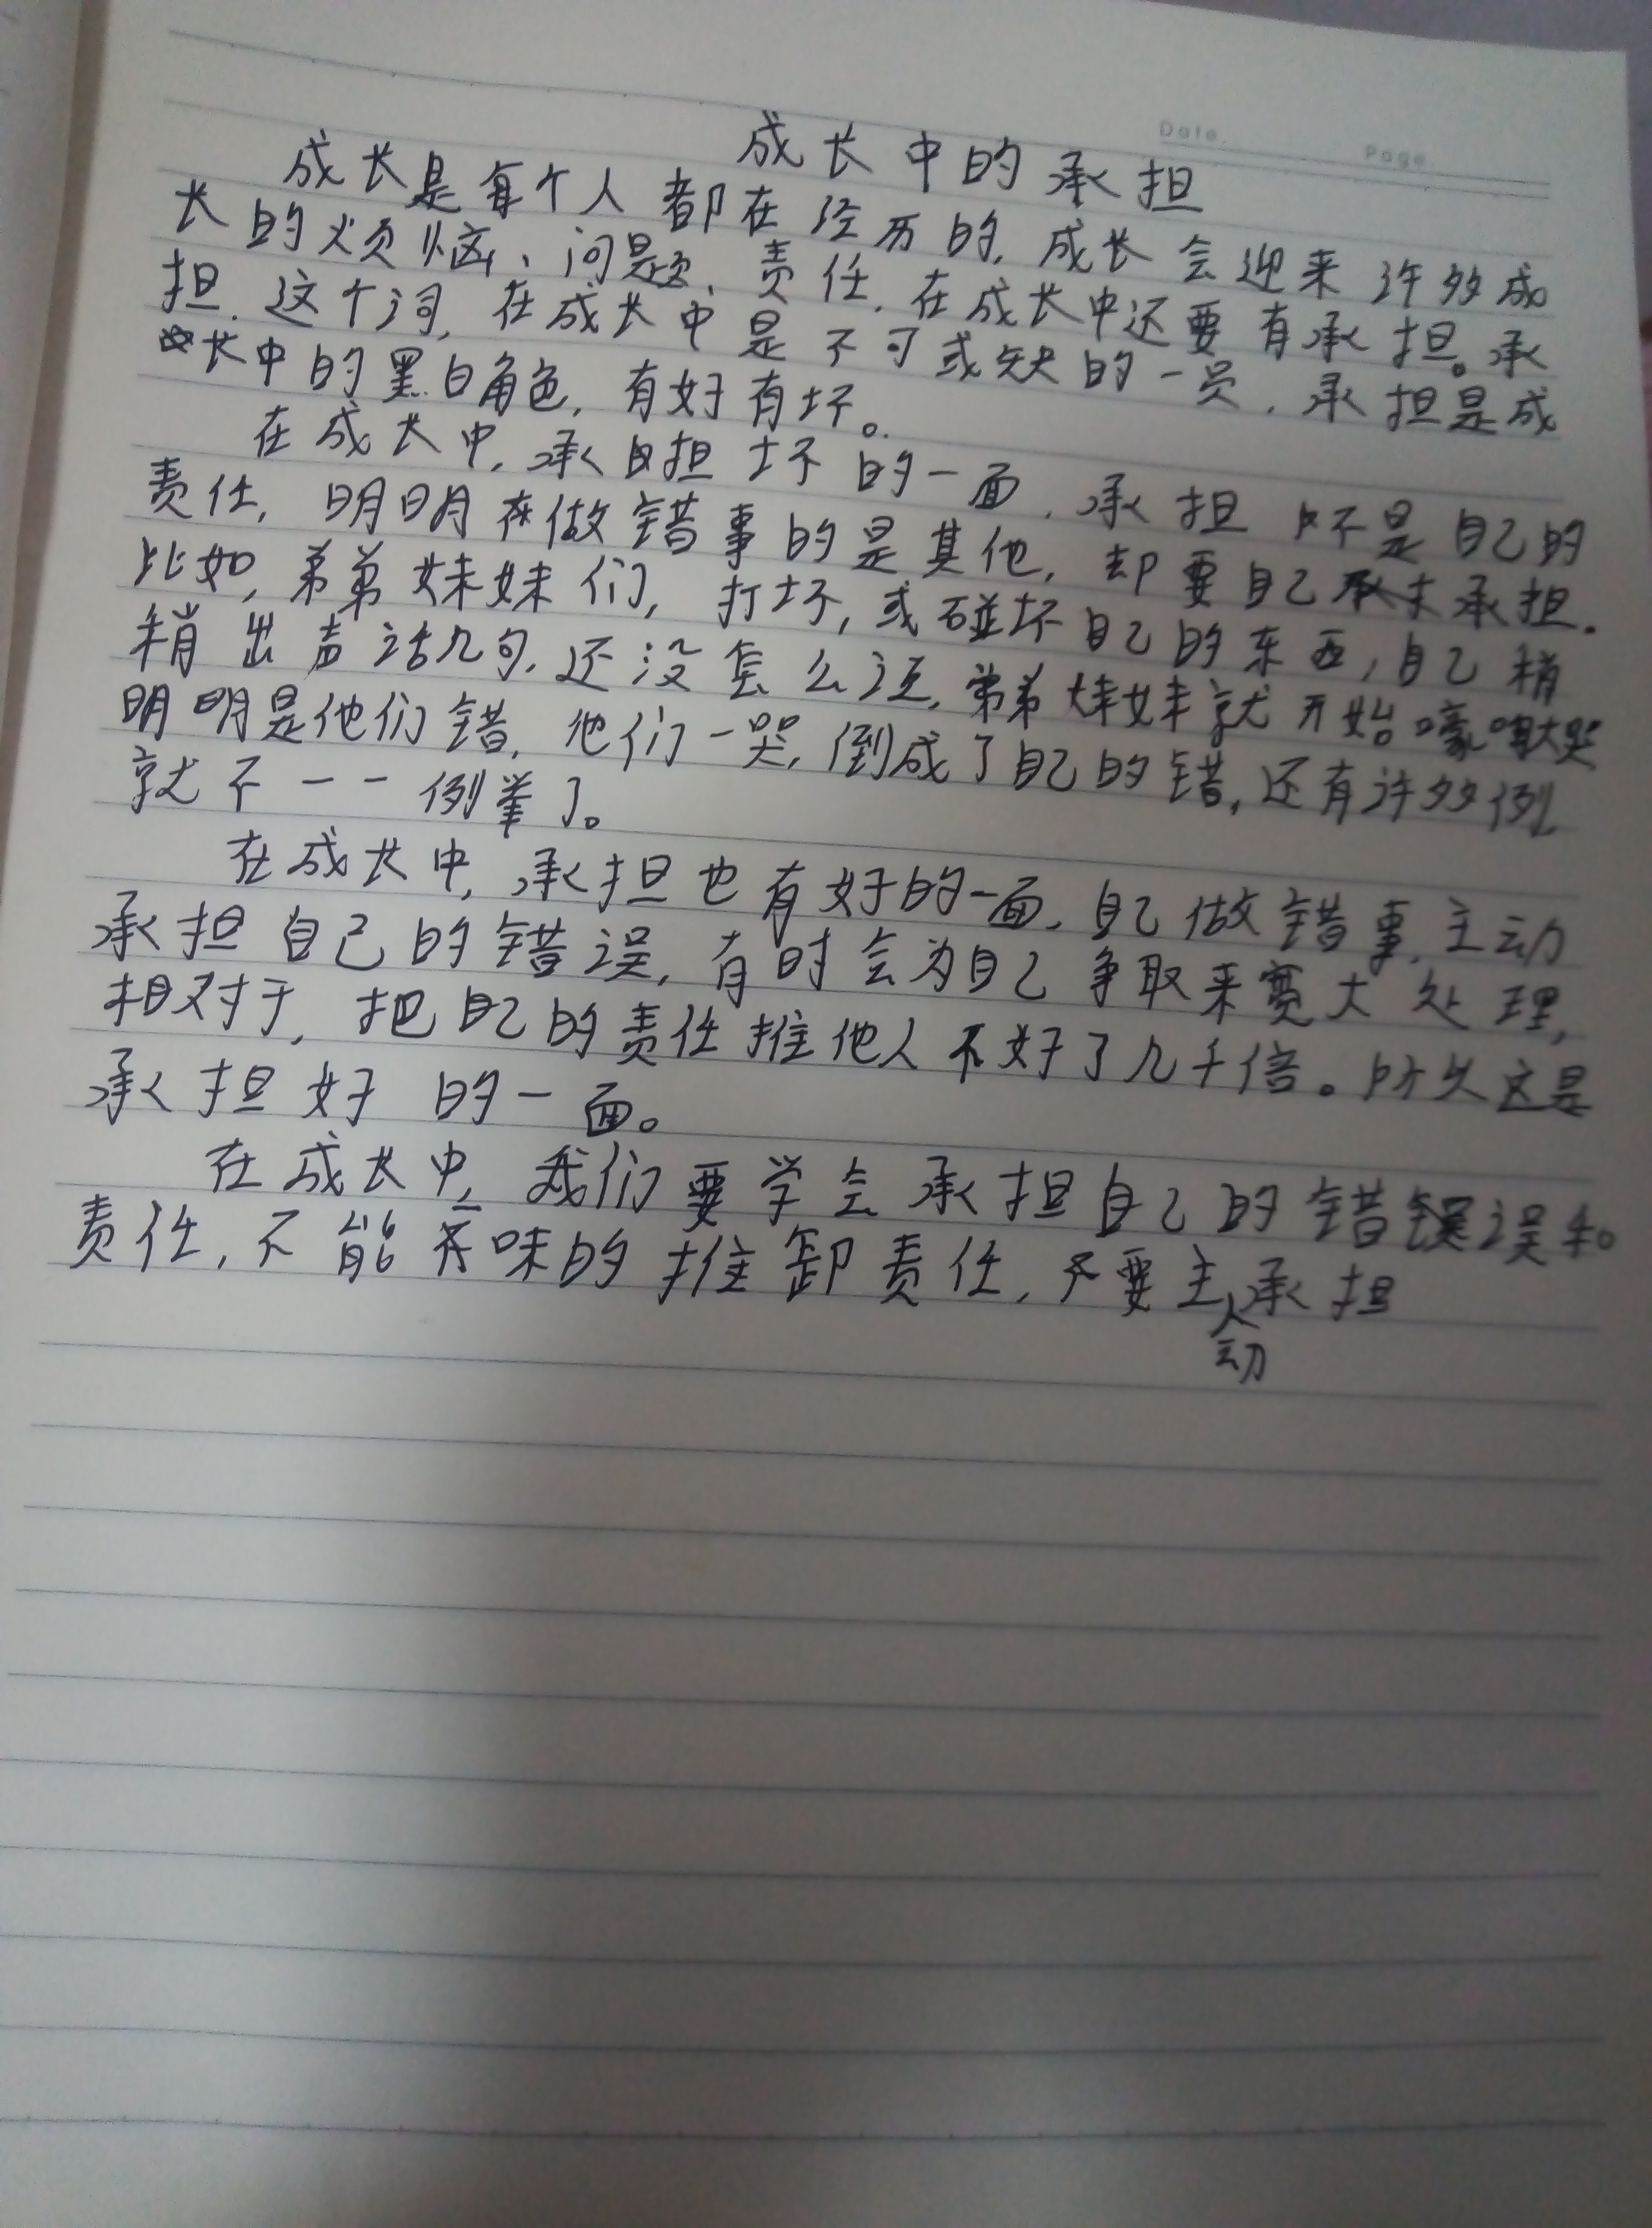 Date.
Page.
成长中的承担
成长是每个人都在经历的,成长会迎来许多成
长的烦恼、问题、责任,在成长中还要有承担。承
担,这个词,在成长中是不可或缺的一员,承担是成
长中的黑白角色,有好有坏。
在成长中,承担坏的一面,承担不是自己的
责任,明明做错事的是其他,却要自己来承担.
比如,弟弟妹妹们,打坏,或碰坏自己的东西,自己稍
稍出声话几句,还没怎么,弟弟妹妹就开始嚎啕大哭
明明是他们错,他们一哭,倒成了自己的错,还有许多例,
就不一一例举了。
在成长中,承担也有好的一面,自己做错事,主动
承担自己的错误,有时会为自己争取来宽大处理,
相对于,把自己的责任推他人不好了几千倍。所以这是
承担好的一面。
在成长中,我们要学会承担自己的错误和
责任,不能味的推卸责任,要主动承担